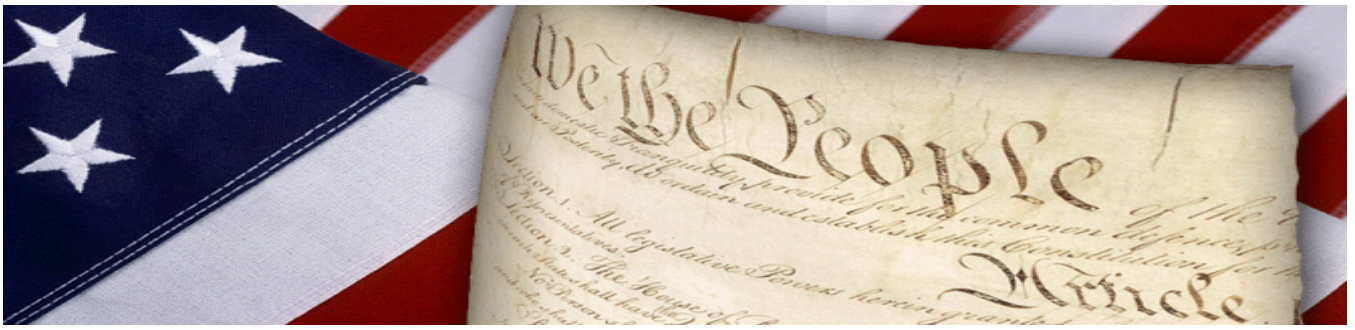 We the People of the
domestic Tranquility, provide for the common defence,
Posterity, do ordain and establish this Constitution for
Article
Section. 1. All legislative Powers herein grante
of Representatives.
Section. 2. The House of
in each State shall have
No Person